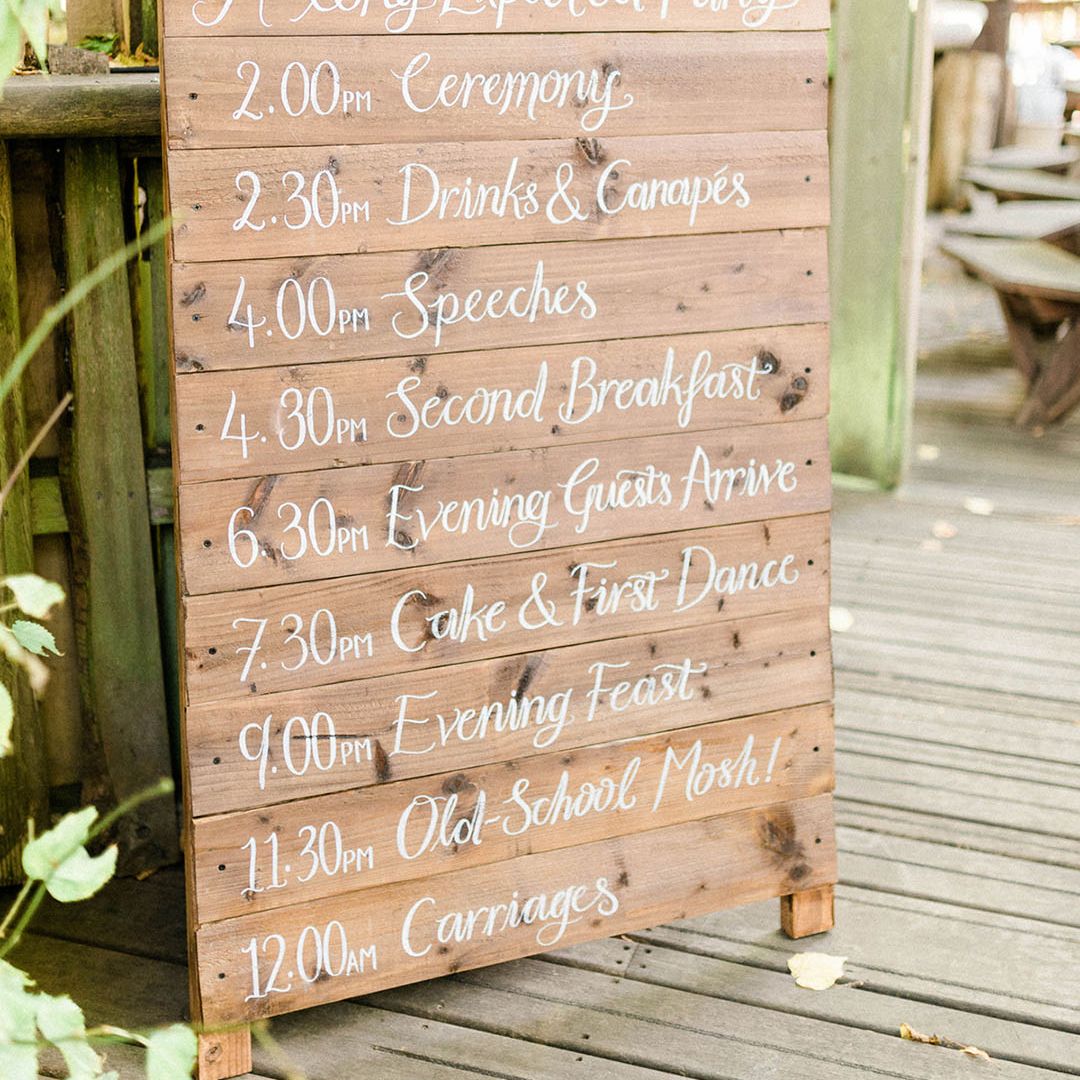 A Long Expected Party
2.00PM Ceremony
2.30PM Drinks & Canapés
4.00PM Speeches
4.30PM Second Breakfast
6.30PM Evening Guests Arrive
7.30PM Cake & First Dance
9.00PM Evening Feast
11.30PM Old-School Mosh!
12.00AM Carriages